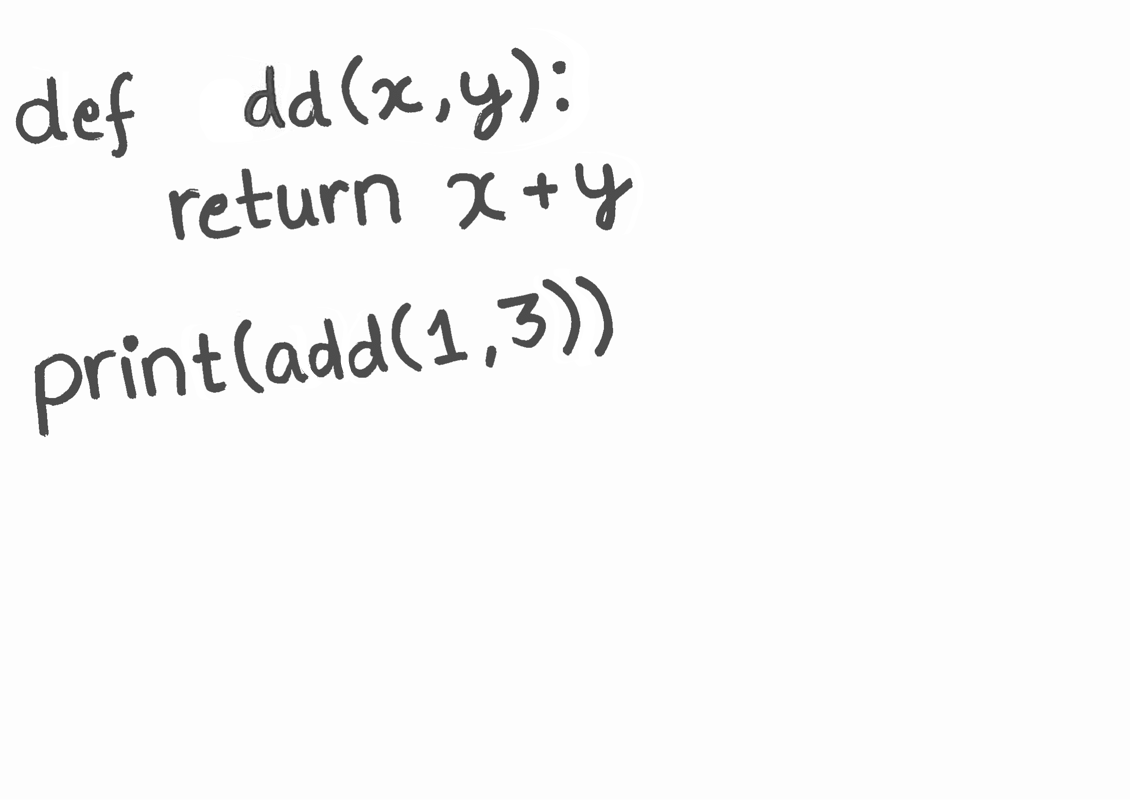 def dd(x,y):
return x+y
print(add(1,3))